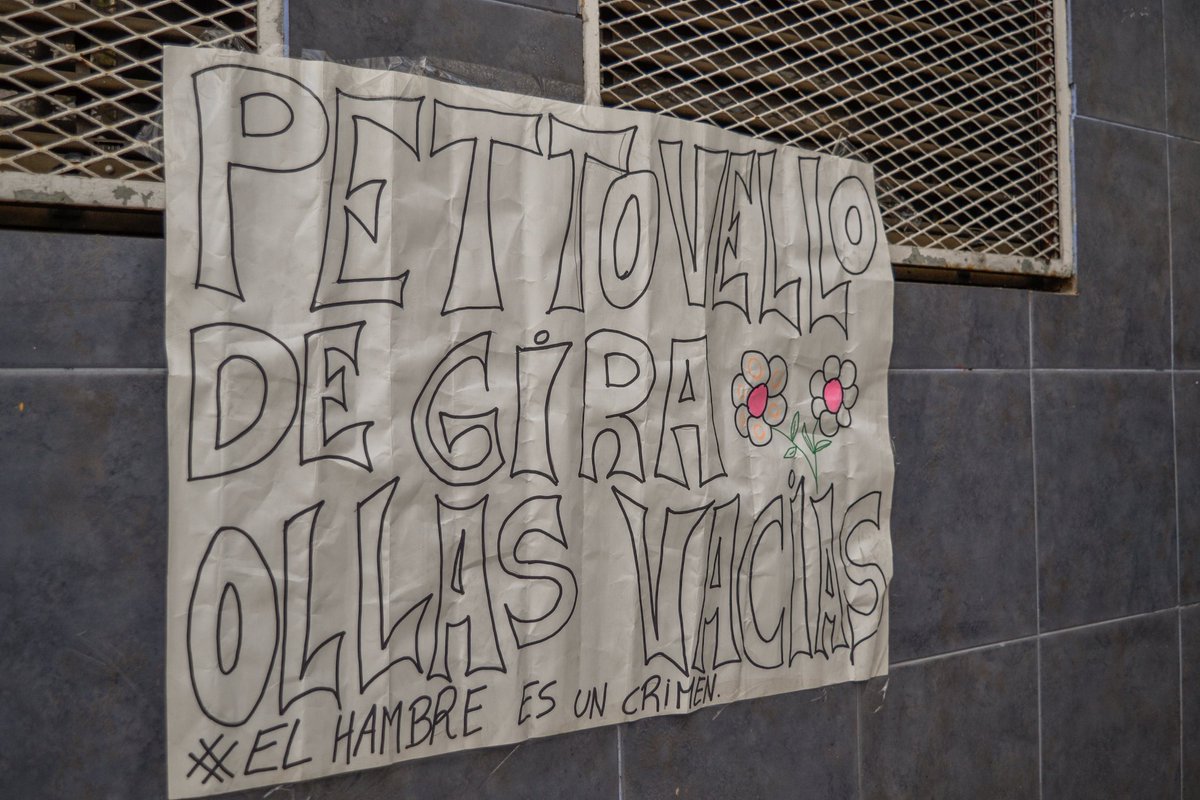 PETTOVELLO
DE GiRA
OLLAS VACíAS
# EL HAMBRE ES UN CRiMEN.